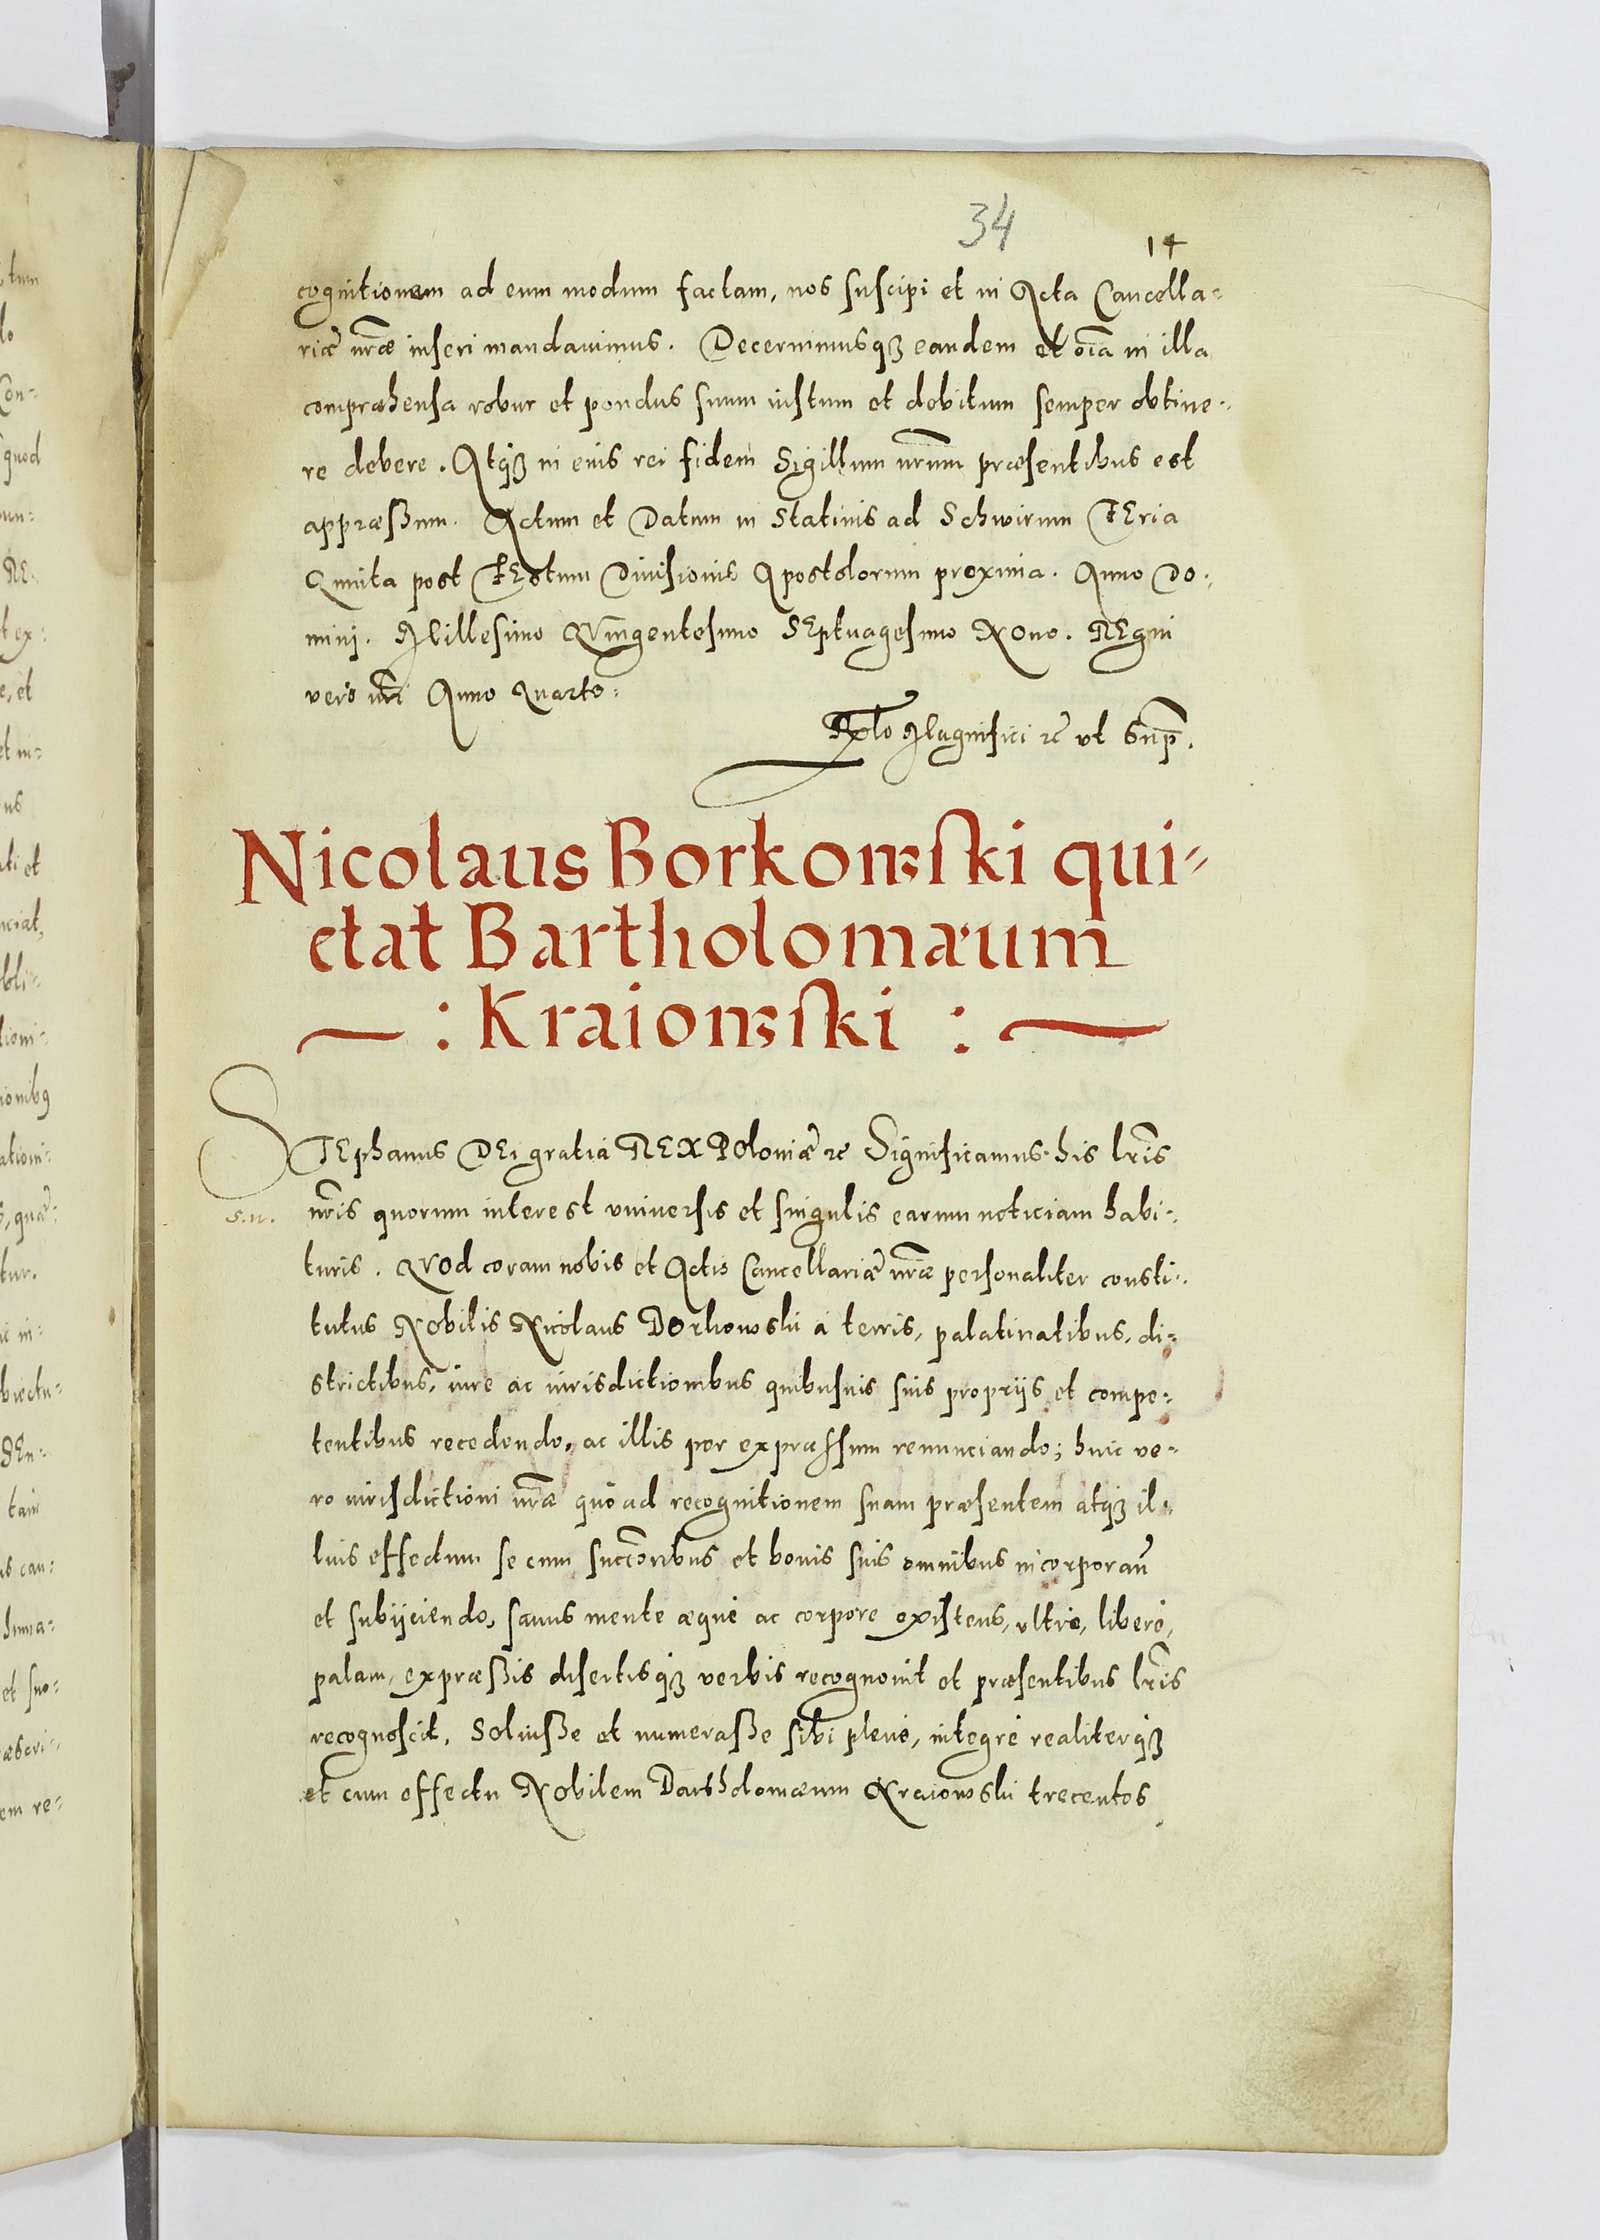 34
14
cognitionem ad eum modum factam, nos suscipi et in Acta Cancella-
riæ nr̃æ inseri mandavimus. Decernimusqꝫ eandem et oĩa in illa
compræhensa robur et pondus suum iustum et debitum semper obtine-
re debere. Atqꝫ in eius rei fidem Sigillum nr̃um præsentibus est
appræßum. Actum et Datum in Stativis ad Schwirum FEria
Quinta post FEstum Divisionis Apostolorum proxima. Anno Do-
mini. Millesimo QVingentesimo SEptuagesimo Nono. REgni
vero nr̃i Anno Quarto:
Rel̃o Magnifici ꝛc̃ ut Sup̃.
Nicolaus Borkowski qui-
etat Bartholomæum
: Kraiowski :
STEphanus DEi gratia REX POloniæ ꝛc̃ Significamus his lr̃is
s.n. nr̃is quorum interest universis et singulis earum noticiam habi-
turis. QVod coram nobis et Actis Cancellariæ nr̃æ personaliter consti-
tutus Nobilis Nicolaus Borkowski à terris, palatinatibus, di-
strictibus, iure ac iurisdictionibus quibusvis suis proprijs et compe-
tentibus recedendo, ac illis per expræssum renunciando; huic ve-
ro iurisdictioni nr̃æ quò ad recognitionem suam præsentem atqꝫ il-
lius effectum se cum succc̃oribus et bonis suis omnibus incorporañ
et subijciendo, sanus mente æquè ac corpore existens, ultrò, liberè,
palam, expræßis disertisqꝫ verbis recognovit et præsentibus lr̃is
recognoscit, Solviße et numeraße sibi plenè, integrè realiterqꝫ
et cum effectu Nobilem Bartholomæum Kraiowski trecentos